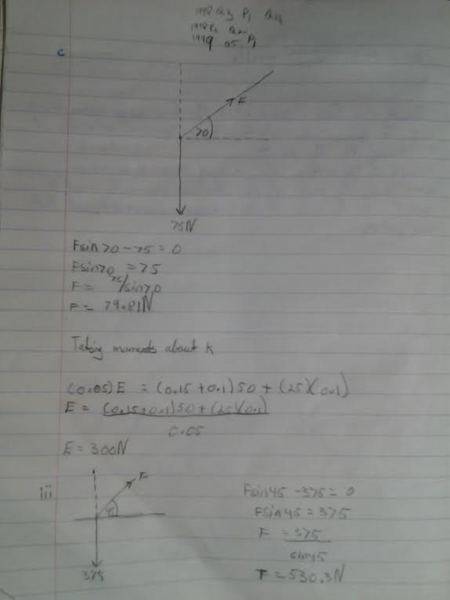 1998 Q3 P1
1999 Q5 P1
c
F
70
75N
Fsin70 - 75 = 0
Fsin70 = 75
F = 75/sin70
F = 79.81N
Taking moments about K
(0.05)E = (0.15+0.1)50 + (25)(0.1)
E = (0.15+0.1)50 + (25)(0.1)
0.05
E = 300N
iii
F
375
Fsin45 - 375 = 0
Fsin45 = 375
F = 375
sin45
F = 530.3N